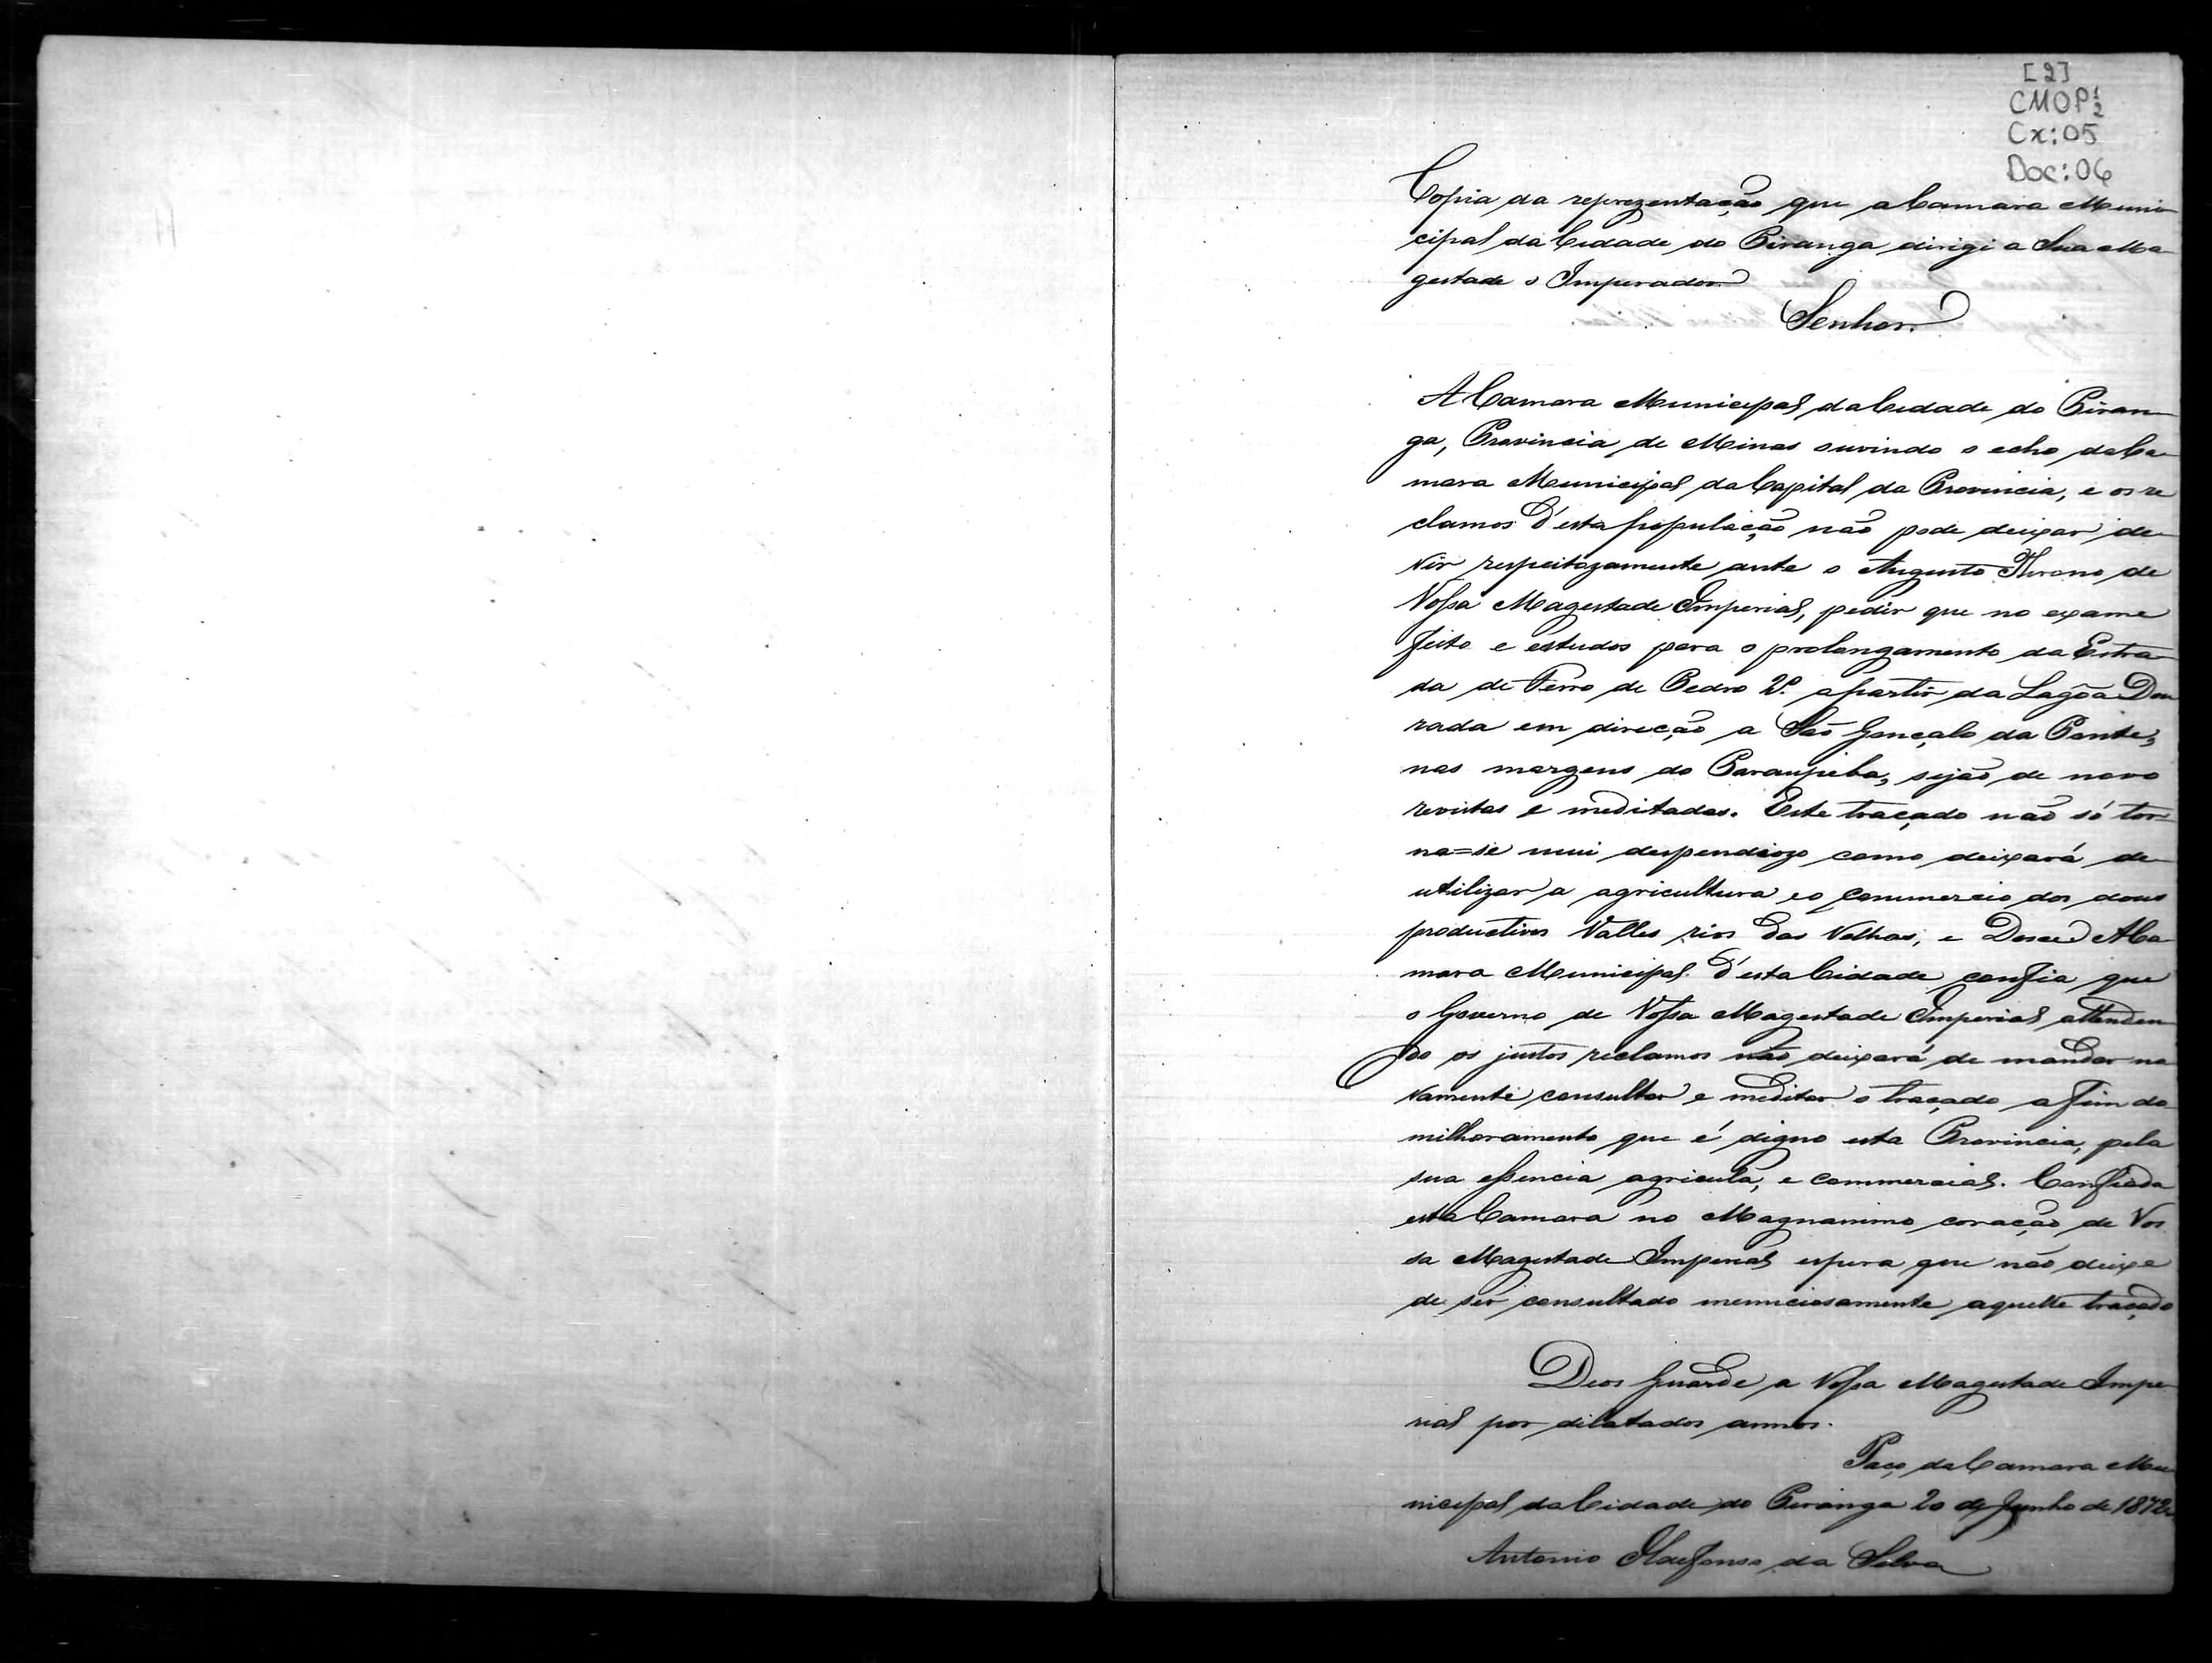 [2]
CMOP 1/2
Cx: 05
Doc: 06
Copia da reprezentação que a Camara Muni
cipal da Cidade do Piranga dirigi a Sua Ma
gestade o Imperador
Senhor.
A Camara Municipal da Cidade do Piran
ga, Provincia de Minas ouvindo o echo da Ca
mara Municipal da Capital da Provincia, e os re
clamos d'esta população não pode deixar de
vir respeitozamente ante o Augusto Throno de
Vossa Magestade Imperial, pedir que no exame
feito e estudos para o prolongamento da Estra
da de Ferro de Pedro 2º. a partir da Lagôa Dou
rada em direcção a São Gonçalo da Ponte,
nas margens do Paraupeba, sejão de novo
revistas e meditadas. Este traçado não só tor
na=se mui despendiozo como deixará de
utilizar a agricultura e o commercio dos dous
productivos Valles rios das Velhas, e Doce A Ca
mara Municipal d'esta Cidade confia que
o Governo de Vossa Magestade Imperial attenden
do os justos reclamos não deixará de mandar no
vamente consultar e meditar o traçado a fim do
milhoramento que é digno esta Provincia, pela
sua essencia agricula, e commercial. Confiada
esta Camara no Magnanimo coração de Vos
sa Magestade Imperial espera que não deixe
de ser consultado menuciosamente aquelle traçado
Deos Guarde a Vossa Magestade Impe
rial por dilatados annos.
Paço da Camara Mu
nicipal da Cidade do Piranga 20 de Junho de 1872
Antonio Ildefonso da Silva